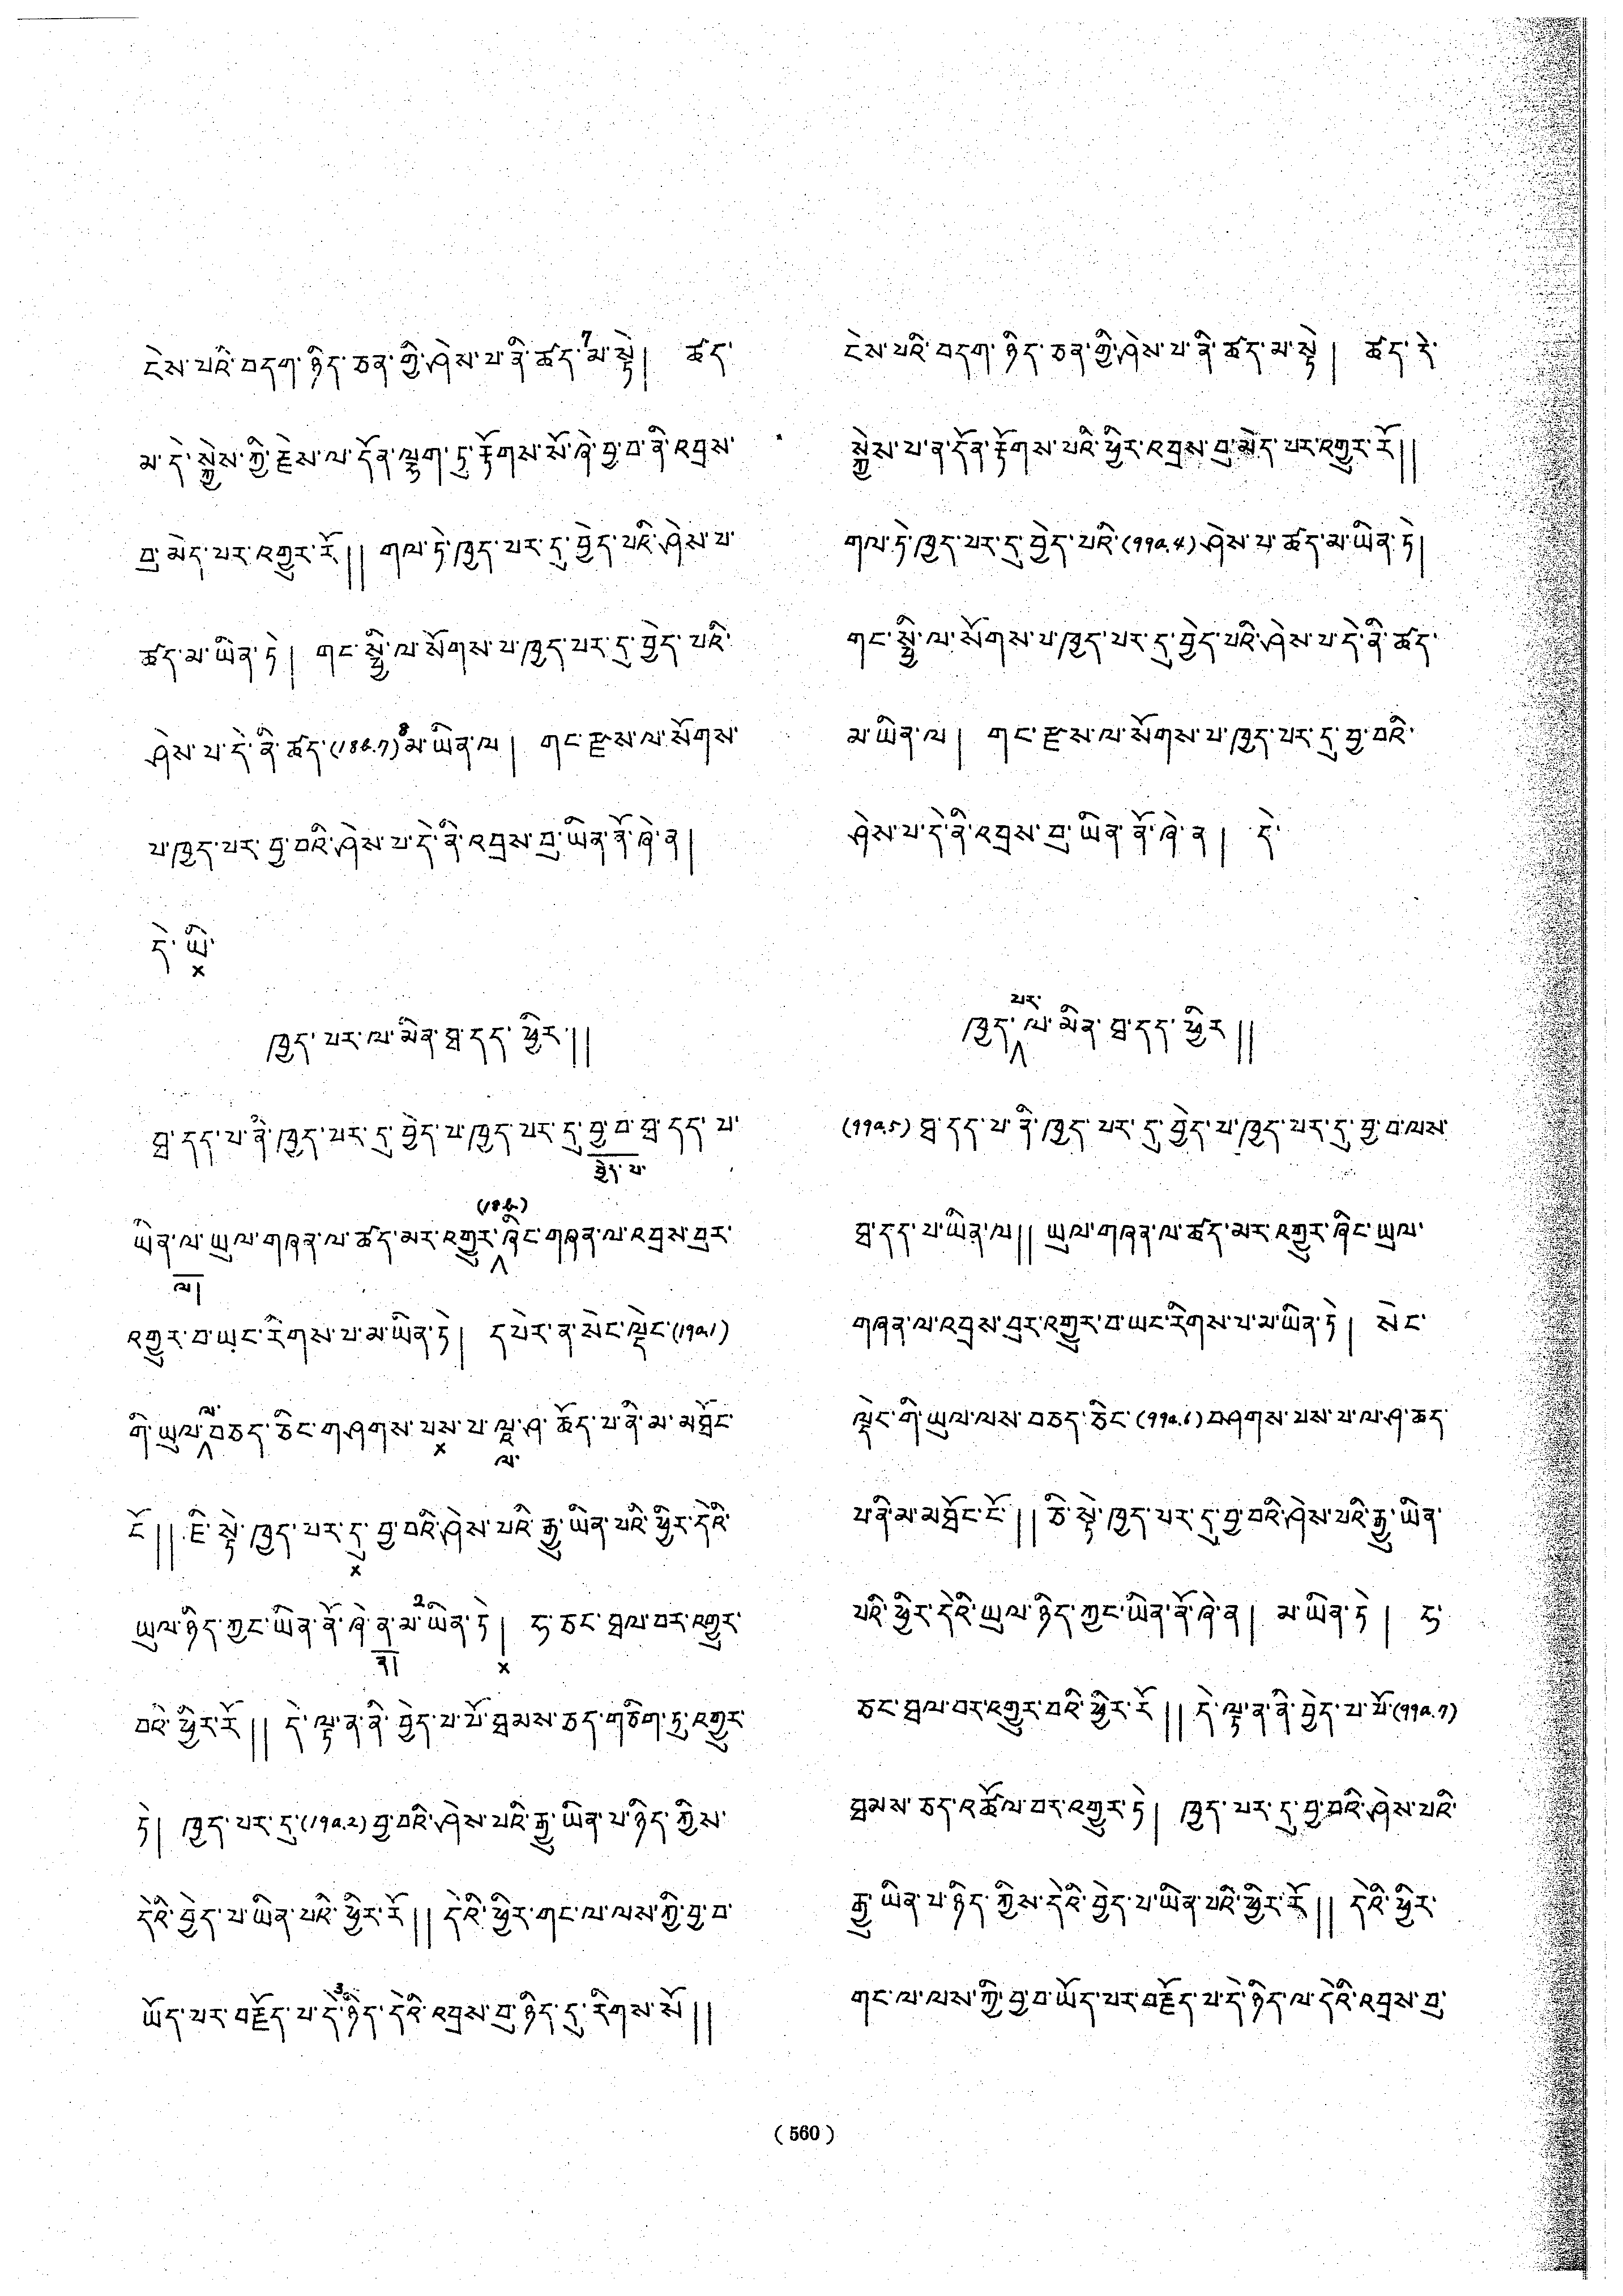 ངེས་པའི་བདག་ཉིད་ཅན་གྱི་ཤེས་པ་ནི་ཚད་7མ་སྟེ།  ཚད་
མ་དེ་སྐྱེས་ཀྱི་རྗེས་ལ་དོན་ལྷག་ཏུ་རྟོགས་སོ་ཞེ་བྱ་བ་ནི་འབྲས་
བུ་མེད་པར་འགྱུར་རོ།། གལ་ཏེ་ཁྱད་པར་དུ་བྱེད་པའི་ཤེས་པ་
ཚད་མ་ཡིན་ཏེ།  གང་སྤྱི་ལ་སོགས་པ་ཁྱད་པར་དུ་བྱེད་པའི་
ཤེས་པ་དེ་ནི་ཚད་(18b.7)8མ་ཡིན་ལ།  གང་རྫས་ལ་སོགས་
པ་ཁྱད་པར་བྱ་བའི་ཤེས་པ་དེ་ནི་འབྲས་བུ་ཡིན་ནོ་ཞེ་ན།
དེ་ཡི་
x
ཁྱད་པར་ལ་མིན་ཐ་དད་ཕྱིར།།
ཐ་དད་པ་ནི་ཁྱད་པར་དུ་བྱེད་པ་ཁྱད་པར་དུ་བྱ་བ་ཐ་དད་པ་
བྱེད་པ་
(18b.)
ཡིན་ལ་ཡུལ་གཞན་ལ་ཚད་མར་འགྱུར་ཞིང་གཞན་ལ་འབྲས་བུར་
ལ།
འགྱུར་བ་ཡང་རིགས་པ་མ་ཡིན་ཏེ།  དཔེར་ན་སེང་ལྡེང་(19a.1)
ལ་
གི་ཡུལ་བཅད་ཅིང་གཤགས་པས་པ་ལཱ་ཤ་ཆོད་པ་ནི་མ་མཐོང་
x ལ་
ངོ།། ཇི་སྟེ་ཁྱད་པར་དུ་བྱ་བའི་ཤེས་པའི་རྒྱུ་ཡིན་པའི་ཕྱིར་དེའི་
x
ཡུལ་ཉིད་ཀྱང་ཡིན་ནོ་ཞེ་ན་མ་2ཡིན་ཏེ།  ཧ་ཅང་ཐལ་བར་འགྱུར་
ན། x
བའི་ཕྱིར་རོ།། དེ་ལྟ་ན་ནི་བྱེད་པ་པོ་ཐམས་ཅད་གཅིག་ཏུ་འགྱུར་
ཏེ།  ཁྱད་པར་དུ་(19a.2)བྱ་བའི་ཤེས་པའི་རྒྱུ་ཡིན་པ་ཉིད་ཀྱིས་
དེའི་བྱེད་པ་ཡིན་པའི་ཕྱིར་རོ།། དེའི་ཕྱིར་གང་ལ་ལས་ཀྱི་བྱ་བ་
ཡོད་པར་བརྗོད་པ་དེ་3ཉིད་དེའི་འབྲས་བུ་ཉིད་དུ་རིགས་སོ།།
ངེས་པའི་བདག་ཉིད་ཅན་གྱི་ཤེས་པ་ནི་ཚད་མ་སྟེ།  ཚད་དེ་
སྐྱེས་པ་ན་དོན་རྟོགས་པའི་ཕྱིར་འབྲས་བུ་མེད་པར་འགྱུར་རོ།།
གལ་ཏེ་ཁྱད་པར་དུ་བྱེད་པའི་(11a.4)ཤེས་པ་ཚད་མ་ཡིན་ཏེ།
གང་སྤྱི་ལ་སོགས་པ་ཁྱད་པར་དུ་བྱེད་པའི་ཤེས་པ་དེ་ནི་ཚད་
མ་ཡིན་ལ།  གང་རྫས་ལ་སོགས་པ་ཁྱད་པར་དུ་བྱ་བའི་
ཤེས་པ་དེ་ནི་འབྲས་བུ་ཡིན་ནོ་ཞེ་ན།  དེ་
པར་
ཁྱད་ལ་མིན་ཐ་དད་ཕྱིར།།
(11a.5)ཐ་དད་པ་ནི་ཁྱད་པར་དུ་བྱེད་པ་ཁྱད་པར་དུ་བྱ་བ་ལས་
ཐ་དད་པ་ཡིན་ལ།། ཡུལ་གཞན་ལ་ཚད་མར་འགྱུར་ཞིང་ཡུལ་
གཞན་ལ་འབྲས་བུར་འགྱུར་བ་ཡང་རིགས་པ་མ་ཡིན་ཏེ།  སེང་
ལྡེང་གི་ཡུལ་ལས་བཅད་ཅིང་(11a.6)བཤགས་པས་པ་ལ་ཤ་ཆད་
པ་ནི་མ་མཐོང་ངོ།། ཅི་སྟེ་ཁྱད་པར་དུ་བྱ་བའི་ཤེས་པའི་རྒྱུ་ཡིན་
པའི་ཕྱིར་དེའི་ཡུལ་ཉིད་ཀྱང་ཡིན་ནོ་ཞེ་ན།  མ་ཡིན་ཏེ།  ཧ་
ཅང་ཐལ་བར་འགྱུར་བའི་ཕྱིར་རོ།། དེ་ལྟ་ན་ནི་བྱེད་པ་པོ་(11a.7)
ཐམས་ཅད་འཚོལ་བར་འགྱུར་ཏེ།  ཁྱད་པར་དུ་བྱ་བའི་ཤེས་པའི་
རྒྱུ་ཡིན་པ་ཉིད་ཀྱིས་དེའི་བྱེད་པ་ཡིན་པའི་ཕྱིར་རོ།། དེའི་ཕྱིར་
གང་ལ་ལས་ཀྱི་བྱ་བ་ཡོད་པར་བརྗོད་པ་དེ་ཉིད་ལ་དེའི་འབྲས་བུ་
(560)